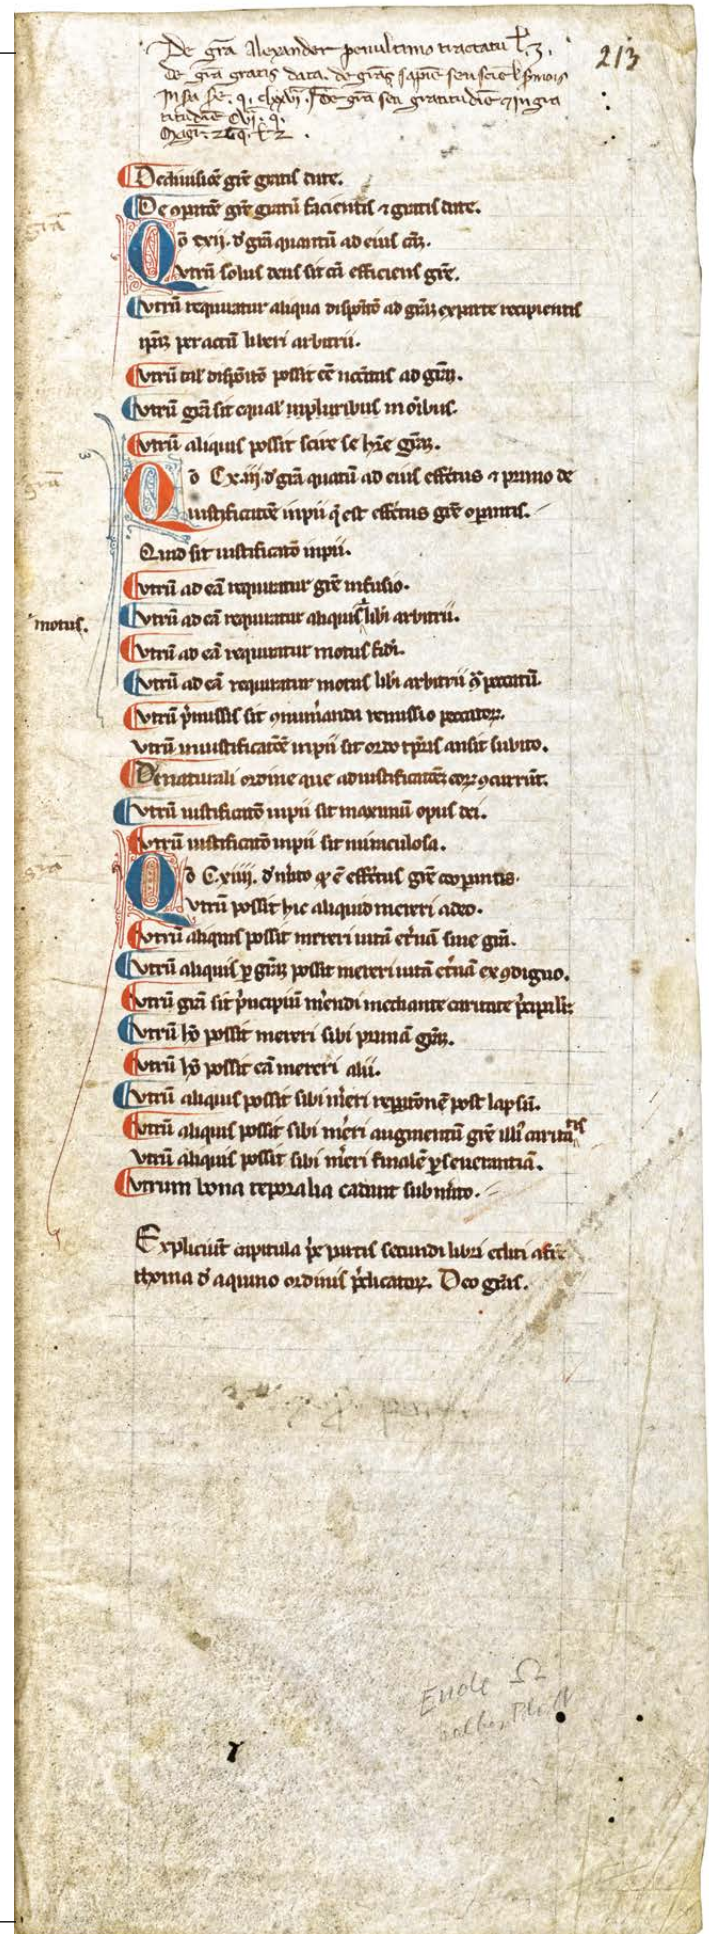 De gr̄a Alexander penultimo tractatu l̄. 3.
De gr̄a gratis data. de gr̄a sapīe seu scīe
213
De gr̄a seu gratitudīe ⁊ ingra
titudīe cvi. q.
De diuisiōe gr̄e gratis date.
De opatōe gr̄e gratū facientis ⁊ gratis date.
Qō cxii. d̓ gr̄a quantū ad eius cāz.
Vtrū solus deus sit cā efficiens gr̄e.
Vtrū requiratur aliqua dispōitō ad gr̄az ex parte recipientis
ip̄az per actū liberi arbitrii.
Vtrū tal' dispōitō possit eē nēcitas ad gr̄az.
Vtrū gr̄a sit equal' in pluribus in oībus.
Vtrū aliquis possit scire se hr̄e gr̄az.
Qō Cxiij. d̓ gr̄a quātū ad eius effc̄tus ⁊ primo de
iustificatōe inpii q̄ est effc̄tus gr̄e opantis.
Quid sit iustificatō inpii.
Vtrū ad eā requiratur gr̄e infusio.
Vtrū ad eā requiratur aliquis lib̄i arbitrii.
motus.
Vtrū ad eā requiratur motus fid̄i.
Vtrū ad eā requiratur motus lib̄i arbitrii ꝯ̄ peccatū.
Vtrū p̄missis sit ꝯnum̄anda remissio peccatoꝝ.
Vtrū in iustificatōe inpii sit ordo tp̄ris an sit subito.
De naturali ordine que ad iustificatōez eoꝝ ꝯcurrūt.
Vtrū iustificatō inpii sit maximū opus dei.
Vtrū iustificatō inpii sit miraculosa.
Qō Cxiiij. d̓ m̓ito qͥ ē effc̄tus gr̄e coopantis.
Vtrū possit hic aliquid mereri a deo.
Vtrū aliquis possit mereri uitā et̓nā sine gr̄a.
Vtrū aliquis ꝑ gr̄az possit mereri uitā et̓nā ex ꝯdigno.
Vtrū gr̄a sit p̓ncipiū m̓endi mediante caritate p̓ncipalr̄.
Vtrū hō possit mereri sibi primā gr̄az.
Vtrū hō possit eā mereri alii.
Vtrū aliquis possit sibi m̓eri repatōnē post lapsū.
Vtrū aliquis possit sibi m̓eri augmentū gr̄e ul' caritātis
Vtrū aliquis possit sibi m̓eri finalē ꝑseuerantiā.
Vtrum bona tēporalia cadunt sub m̓ito.
Expliciūt capitula p̓e partis secundi libri editi a fr̄e
thoma d̓ aquino ordinis p̓dicatoꝝ. Deo gr̄as.
Ende